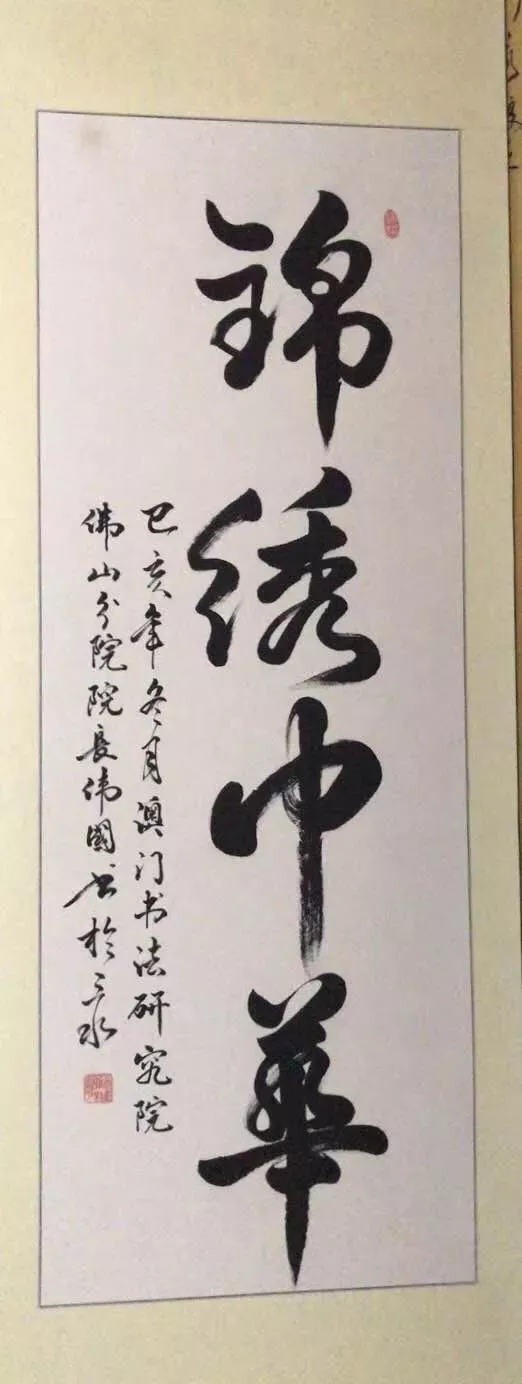 锦绣中华
己亥年冬月澳门书法研究院
佛山分院院长伟國书於三水